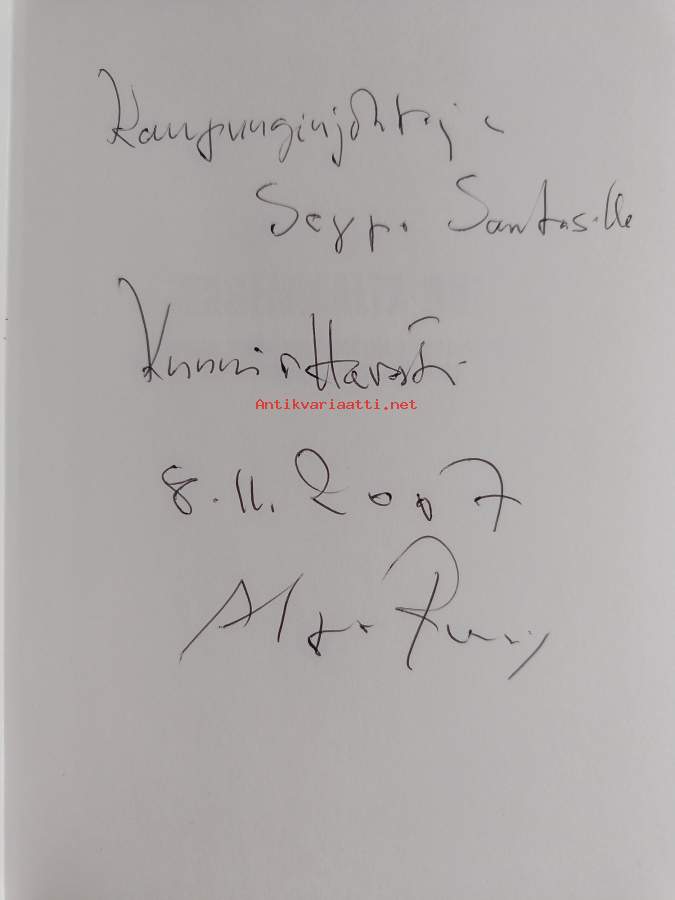 Kaupunginjohtaja
Seppo Santasille
Kunnioittavasti
Antikvariaatti.net
8.11.2007